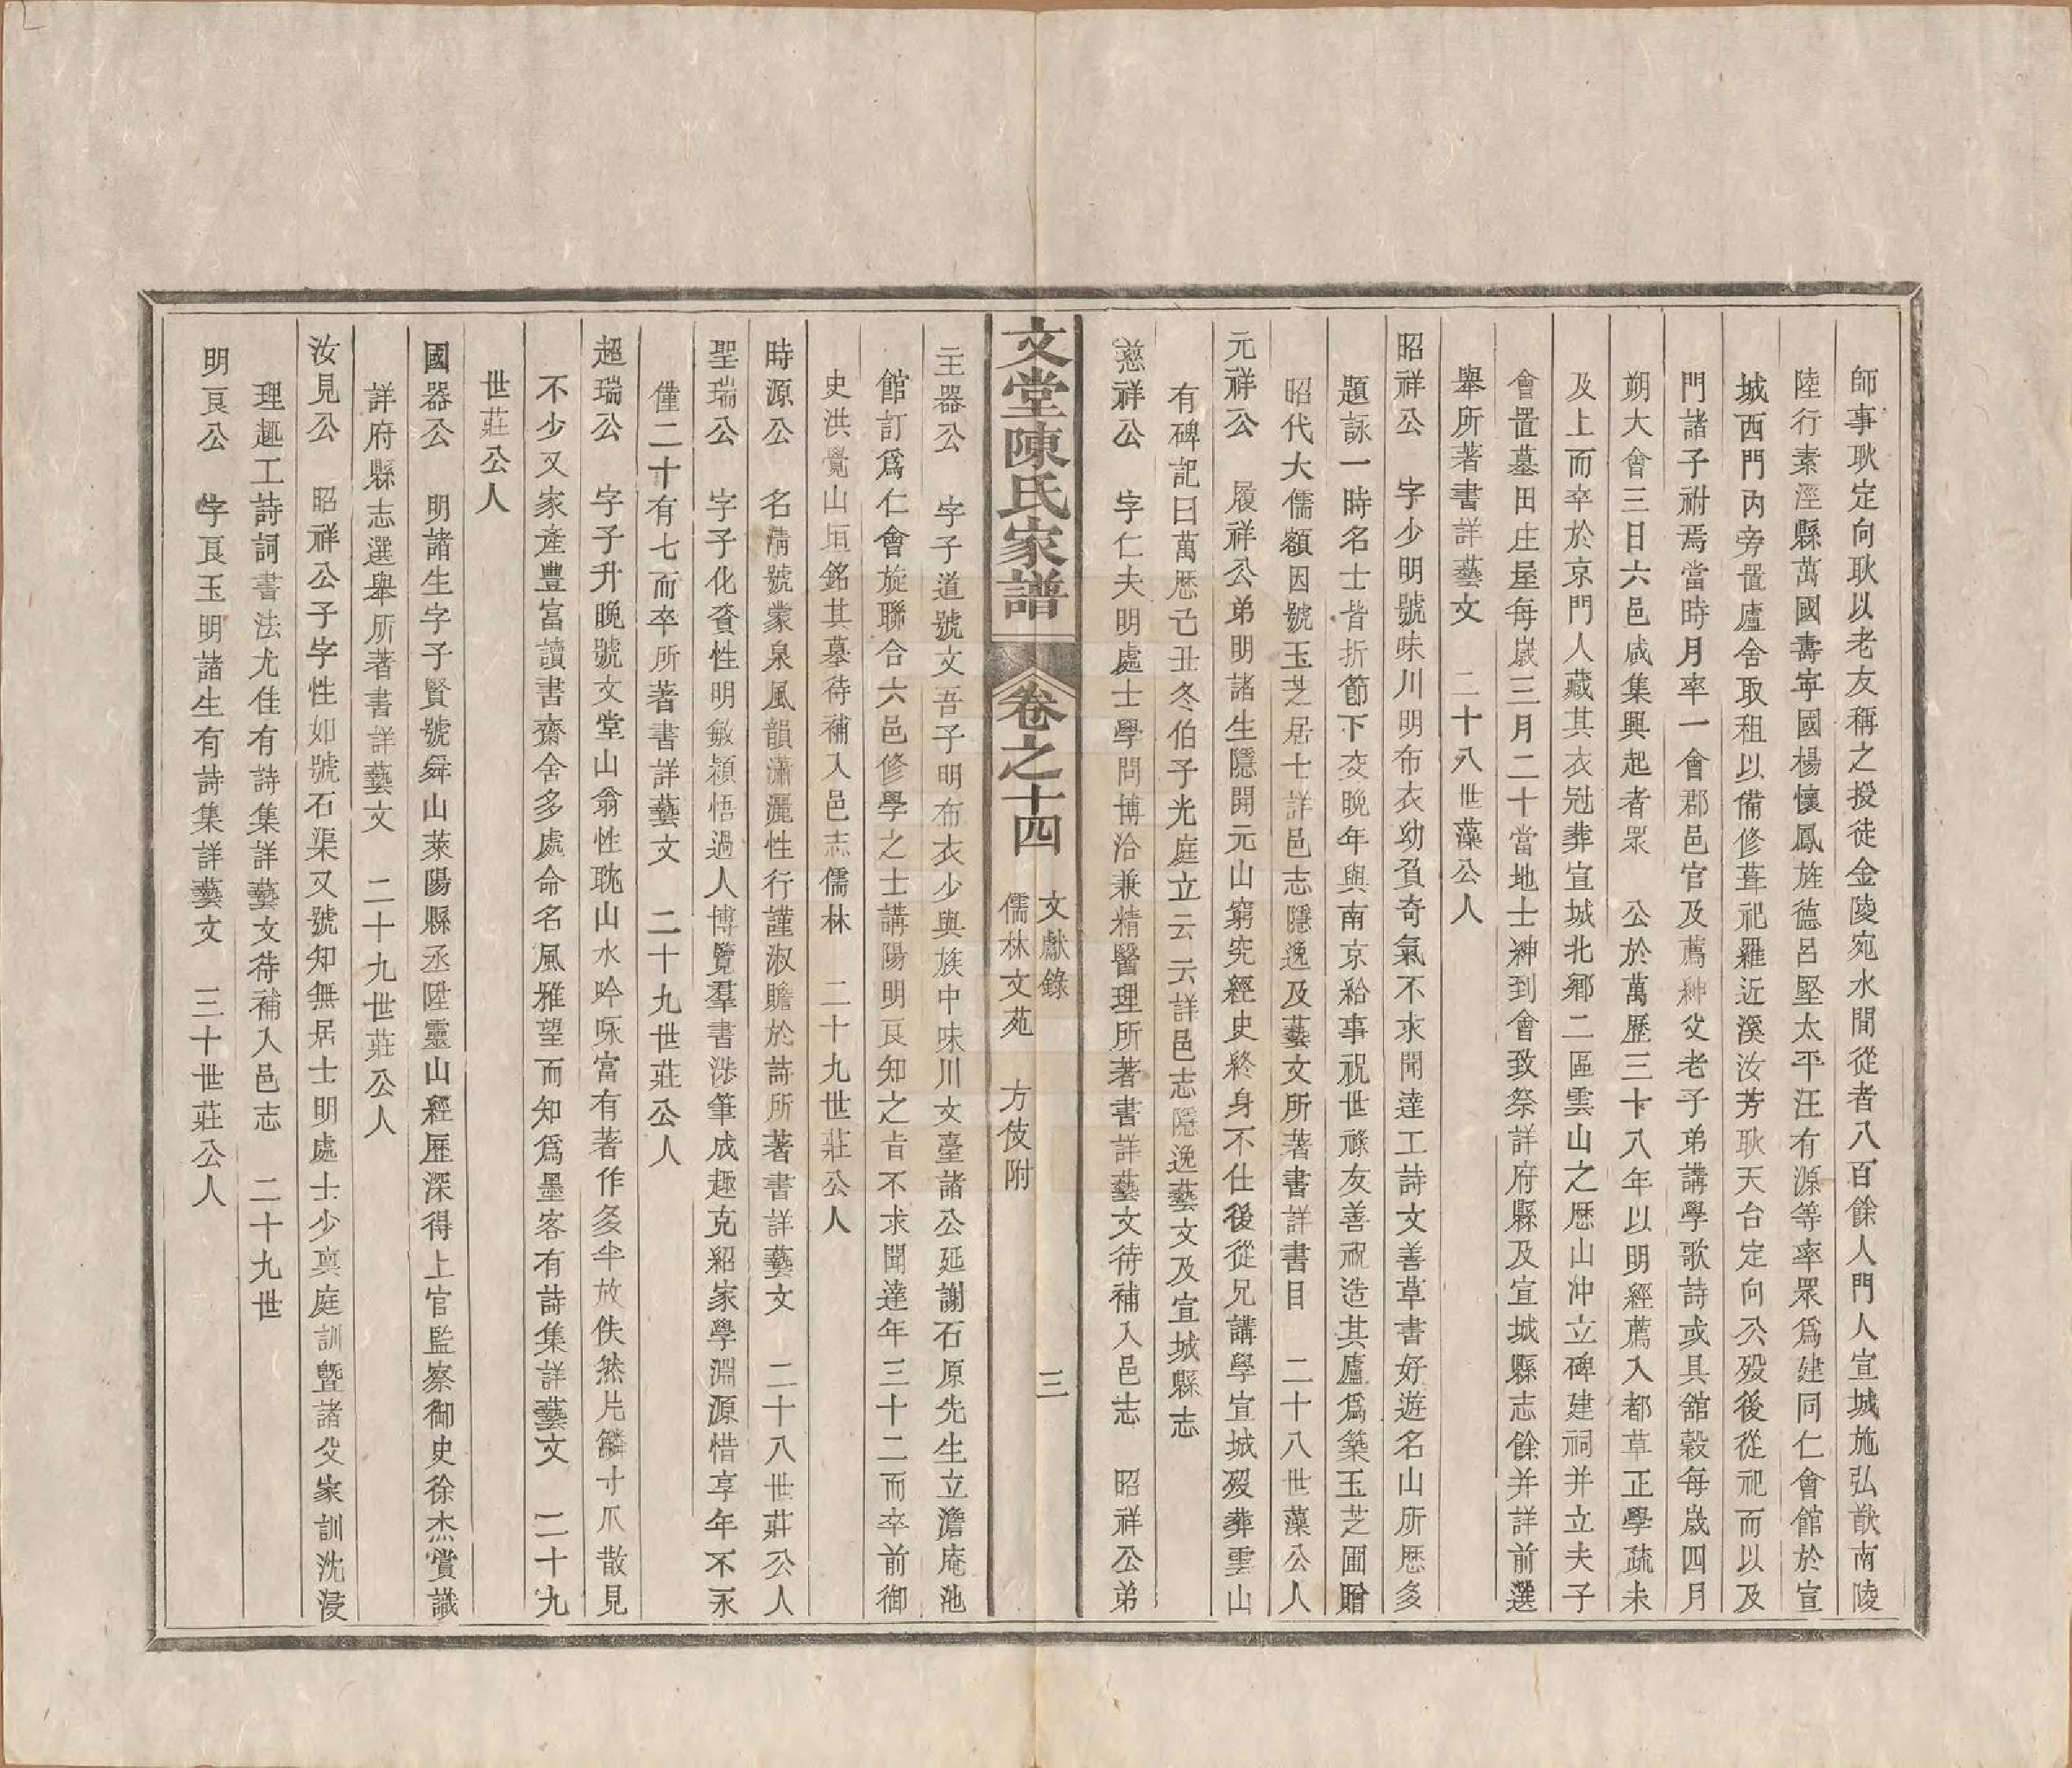 師事耿定向耿以老友稱之授徒金陵宛水間從者八百餘人門人宣城施弘猷南陵
陸行素涇縣萬國壽寧國楊懷鳳旌德呂堅太平汪有源等率眾爲建同仁會館於宣
城西門內旁置廬舍取租以備修葺祀羅近溪汝芳耿天台定向公歿後從祀而以及
門諸子祔焉當時月率一會郡邑官及薦紳父老子弟講學歌詩或具舘穀每歲四月
朔大會三日六邑咸集興起者眾　公於萬歷三十八年以明經薦入都草正學疏未
及上而卒於京門人藏其衣冠葬宣城北鄉二區雲山之歷山沖立碑建祠并立夫子
會置墓田庄屋每歲三月二十當地士紳到會致祭詳府縣及宣城縣志餘并詳前選
舉所著書詳藝文　二十八世藻公人
昭祥公　字少明號味川明布衣幼負奇氣不求聞達工詩文善草書好遊名山所歷多
題詠一時名士皆折節下交晚年與南京給事祝世祿友善祝造其廬爲築玉芝圃贈
昭代大儒額因號玉芝居士詳邑志隱逸及藝文所著書詳書目　二十八世藻公人
元祥公　履祥公弟明諸生隱開元山窮究經史終身不仕後從兄講學宣城歿葬雲山
有碑記曰萬歷己丑冬伯子光庭立云云詳邑志隱逸藝文及宣城縣志
慈祥公　字仁夫明處士學問博洽兼精醫理所著書詳藝文待補入邑志　昭祥公弟
文堂陳氏家譜　卷之十四　文獻錄　儒林文苑　方伎附　三
主器公　字子道號文吾子明布衣少與族中味川文臺諸公延謝石原先生立澹庵池
館訂爲仁會旋聯合六邑修學之士講陽明良知之旨不求聞達年三十二而卒前御
史洪覺山垣銘其墓待補入邑志儒林　二十九世莊公人
時源公　名淸號蒙泉風韻瀟灑性行謹淑贍於詩所著書詳藝文　二十八世莊公人
聖瑞公　字子化資性明敏穎悟過人博覽羣書涉筆成趣克紹家學淵源惜享年不永
僅二十有七而卒所著書詳藝文　二十九世莊公人
超瑞公　字子升晚號文堂山翁性耽山水吟咏富有著作多半放佚然片鱗寸爪散見
不少又家產豐富讀書齋舍多處命名風雅望而知爲墨客有詩集詳藝文　二十九
世莊公人
國器公　明諸生字子賢號舜山萊陽縣丞陞靈山經歷深得上官監察御史徐杰賞識
詳府縣志選舉所著書詳藝文　二十九世莊公人
汝見公　昭祥公子字性如號石渠又號知無居士明處士少稟庭訓曁諸父家訓沈浸
理趣工詩詞書法尤佳有詩集詳藝文待補入邑志　二十九世
明良公　字良玉明諸生有詩集詳藝文　三十世莊公人